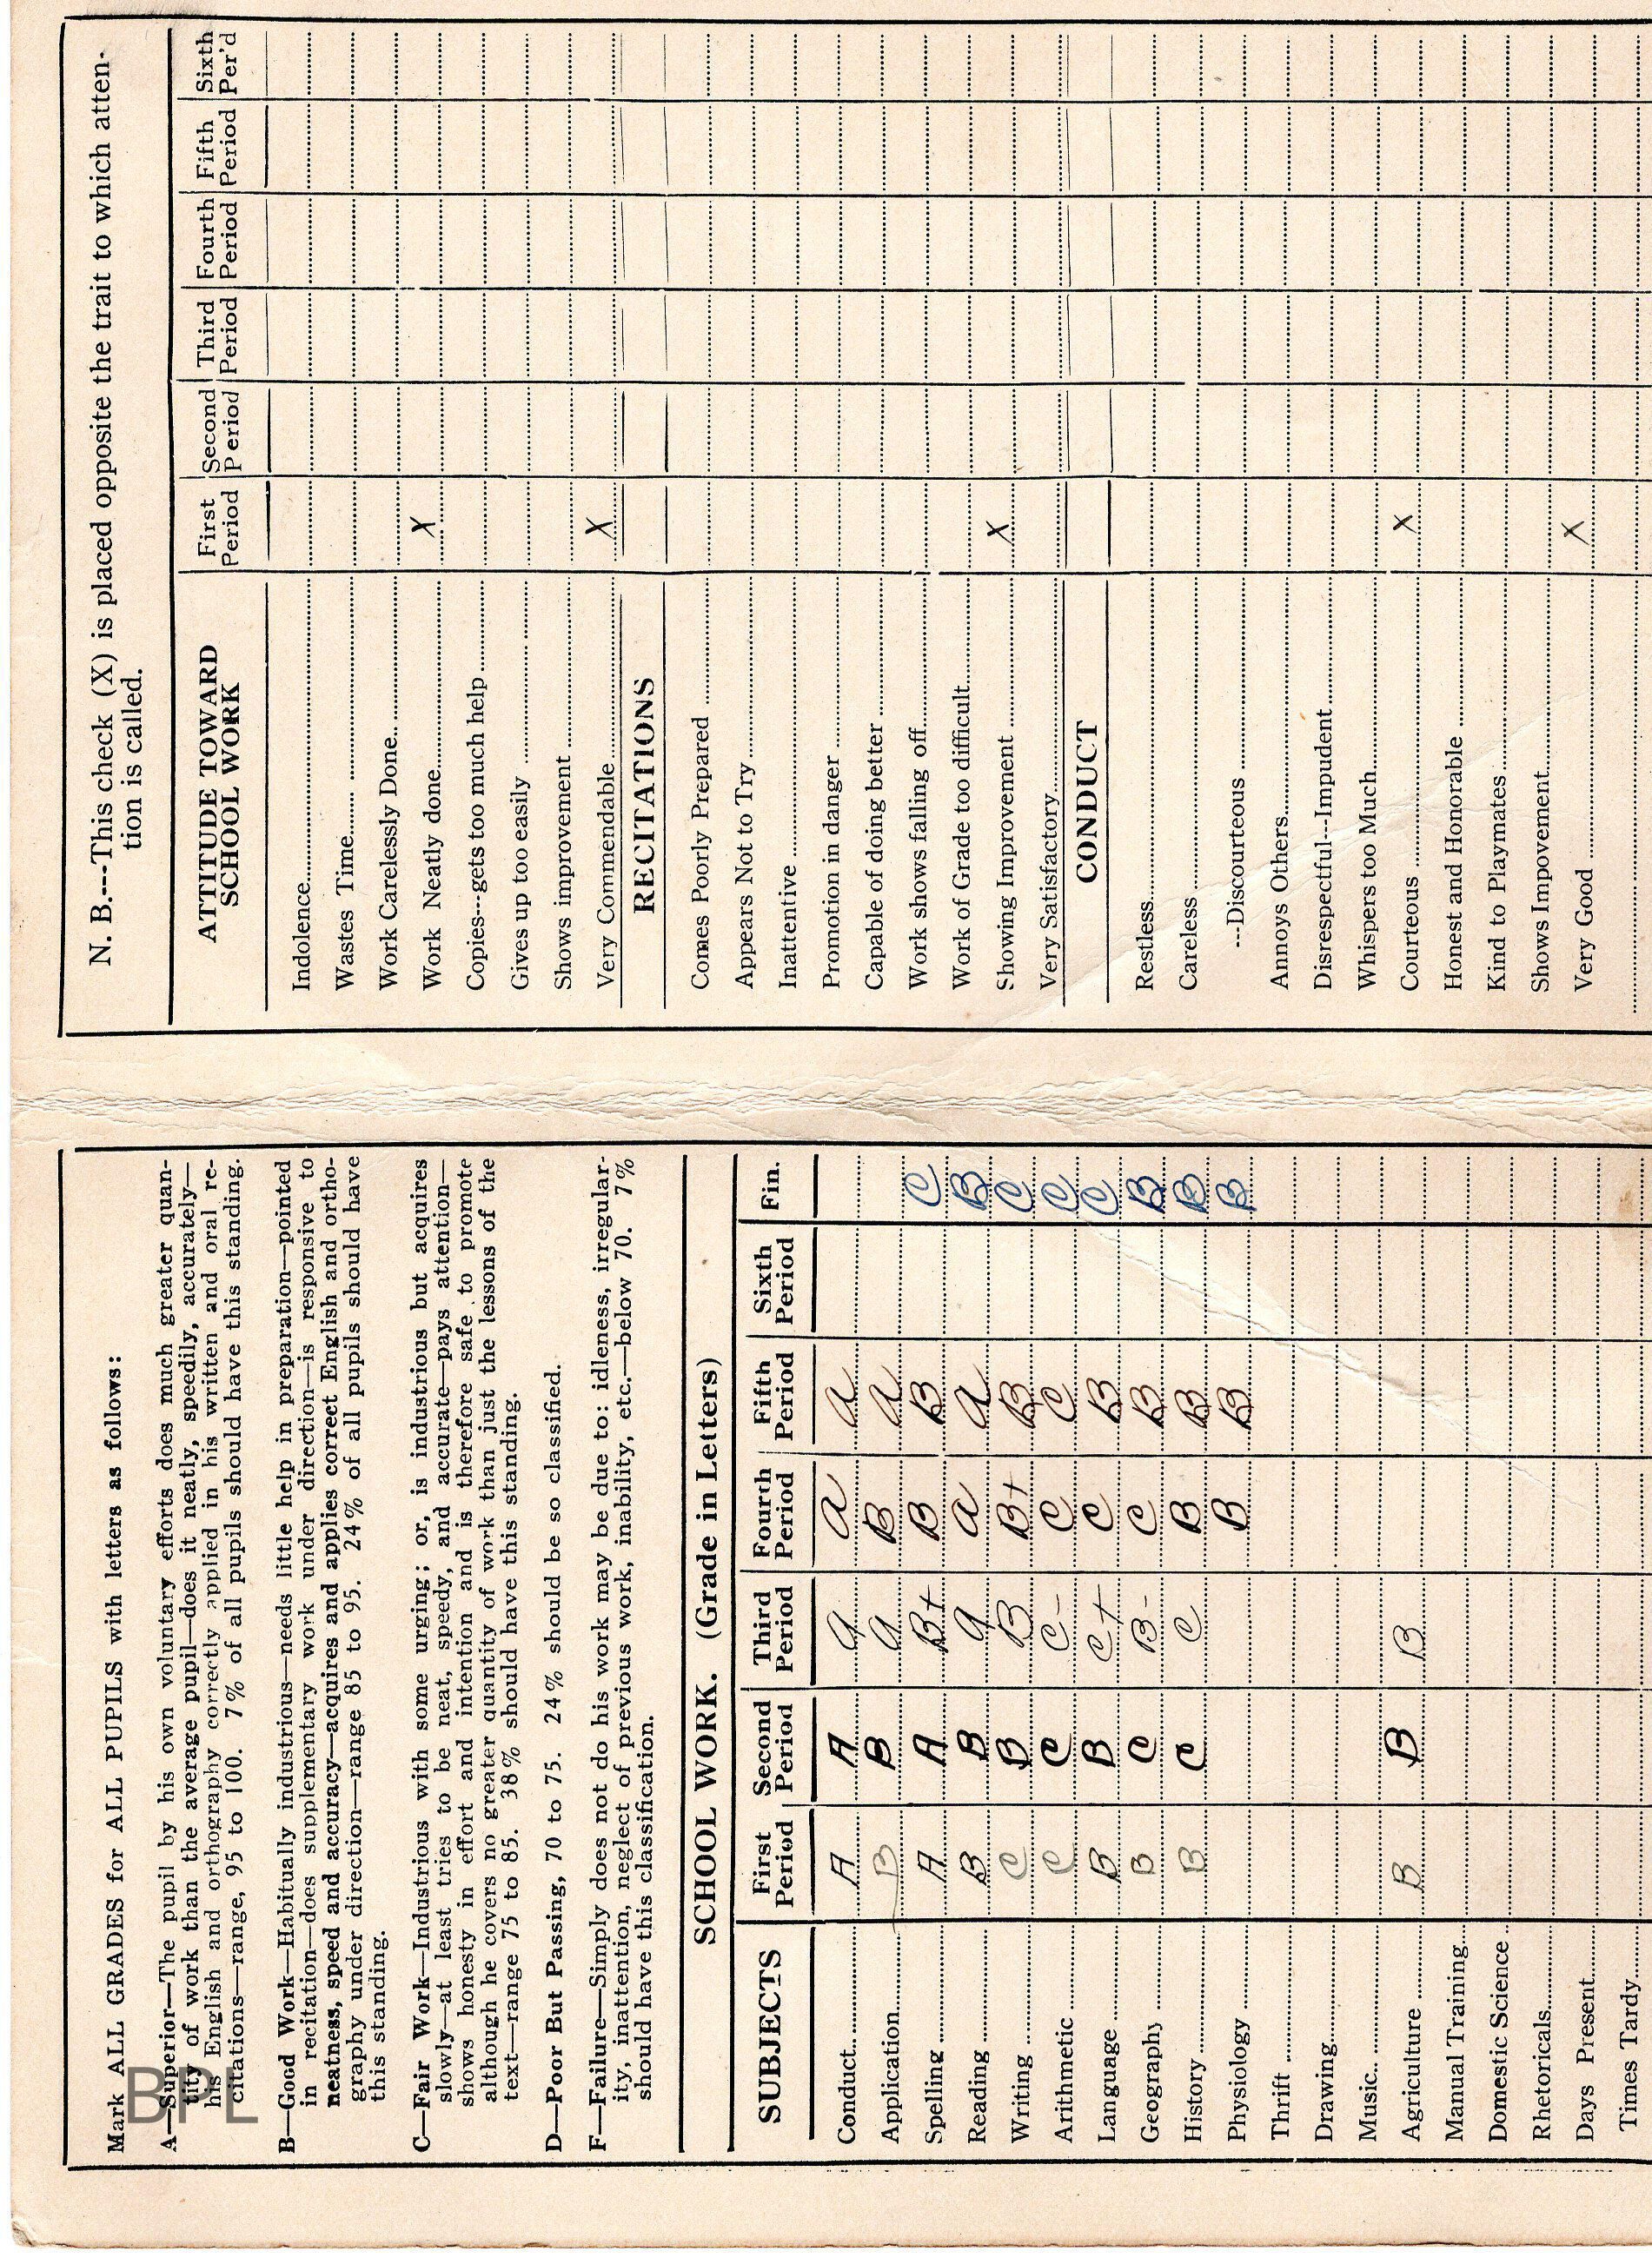 Mark ALL GRADES for ALL PUPILS with letters as follows:
A—Superior—The pupil by his own voluntary efforts does much greater quan-
tity of work than the average pupil—does it neatly, speedily, accurately—
his English and orthography correctly applied in his written and oral re-
citations—range, 95 to 100. 7% of all pupils should have this standing.
B—Good Work—Habitually industrious—needs little help in preparation—pointed
in recitation—does supplementary work under direction—is responsive to
neatness, speed and accuracy—acquires and applies correct English and ortho-
graphy under direction—range 85 to 95. 24% of all pupils should have
this standing.
C—Fair Work—Industrious with some urging; or, is industrious but acquires
slowly—at least tries to be neat, speedy, and accurate—pays attention—
shows honesty in effort and intention and is therefore safe to promote
although he covers no greater quantity of work than just the lessons of the
text—range 75 to 85. 38% should have this standing.
D—Poor But Passing, 70 to 75. 24% should be so classified.
F—Failure—Simply does not do his work may be due to: idleness, irregular-
ity, inattention, neglect of previous work, inability, etc.—below 70. 7%
should have this classification.
SCHOOL WORK. (Grade in Letters)
SUBJECTS First Period Second Period Third Period Fourth Period Fifth Period Sixth Period Fin.
Conduct A A A A A
Application B B A B A
Spelling A A B+ B B C
Reading B B A A A B
Writing C B B B+ B C
Arithmetic C C C- C C C
Language B B C+ C B C
Geography B C B- C B B
History B C C B B B
Physiology B B B
Thrift
Drawing
Music
Agriculture B B B
Manual Training
Domestic Science
Rhetoricals
Days Present
Times Tardy
N. B.---This check (X) is placed opposite the trait to which atten-
tion is called.
ATTITUDE TOWARD SCHOOL WORK First Period Second Period Third Period Fourth Period Fifth Period Sixth Per'd
Indolence
Wastes Time
Work Carelessly Done
Work Neatly done X
Copies---gets too much help
Gives up too easily
Shows improvement
Very Commendable X
RECITATIONS
Comes Poorly Prepared
Appears Not to Try
Inattentive
Promotion in danger
Capable of doing better
Work shows falling off
Work of Grade too difficult
Showing Improvement X
Very Satisfactory
CONDUCT
Restless
Careless
---Discourteous
Annoys Others
Disrespectful---Impudent
Whispers too Much
Courteous X
Honest and Honorable
Kind to Playmates
Shows Impovement
Very Good X
BPL